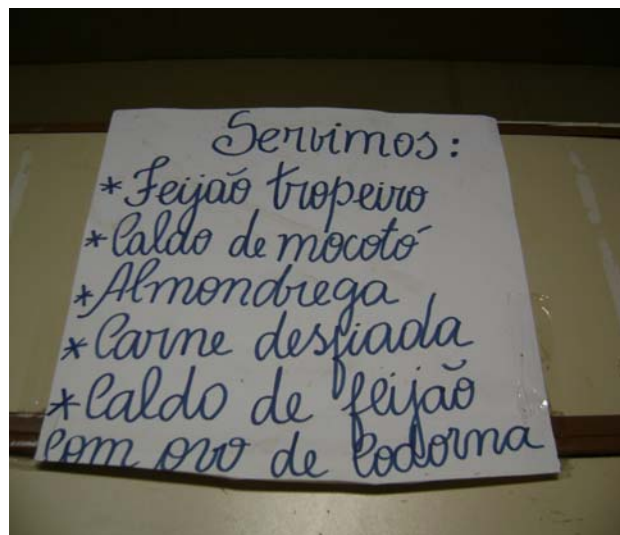 Servimos:
* Feijão tropeiro
* Caldo de mocotó
* Almondrega
* Carne desfiada
* Caldo de feijão
com ovo de Codorna